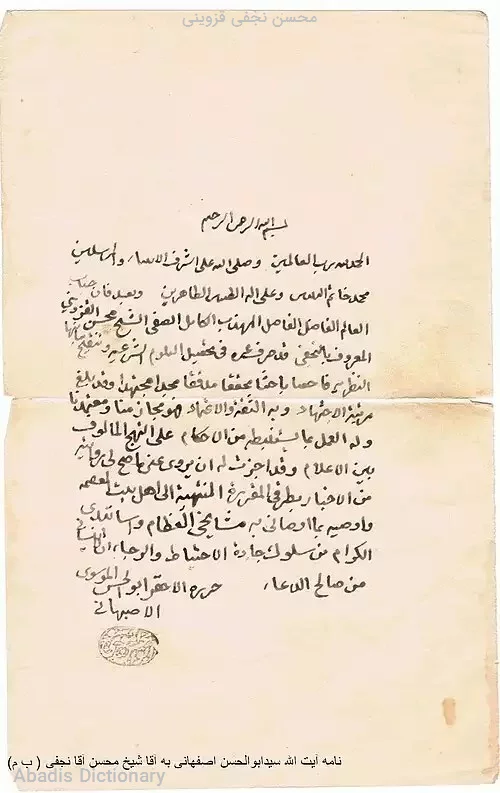 محسن نجفی قزوینی
بسم الله الرحمن الرحیم
الحمد لله رب العالمین وصلی الله علی اشرف الانبیاء والمرسلین
محمد خاتم النبیین وعلی آله الطیبین الطاهرین وبعد فان جناب
العالم الفاضل الفاضل المهذب الکامل الصفی الشیخ محسن القزوینی
المعروف بالنجفی قد صرف عمره فی تحصیل العلوم الشرعیه وتنقیح مبانیها
النظریه فاحصا باحثا محققا مدققا مجدا مجتهدا وقد بلغ
مرتبة الاجتهاد وبه الثقة والاعتماد فهو مجاز منا ومعتمدنا
وله العمل بما یستنبطه من الاحکام علی النهج المالوف
بین الاعلام وقد اجزت له ان یروی عنی ما صح لی روایته
من الاخبار بطرقی المقررة المنتهیة الی اهل بیت العصمه
واوصیه بما اوصانی به مشایخی العظام واساتیدی
الکرام من سلوک جادة الاحتیاط والرجاء ان لا ینسانی
من صالح الدعاء حرره الاحقر ابوالحسن الموسوی
الاصبهانی
نامه آیت الله سیدابوالحسن اصفهانی به آقا شیخ محسن آقا نجفی ( ب م)
Abadis Dictionary